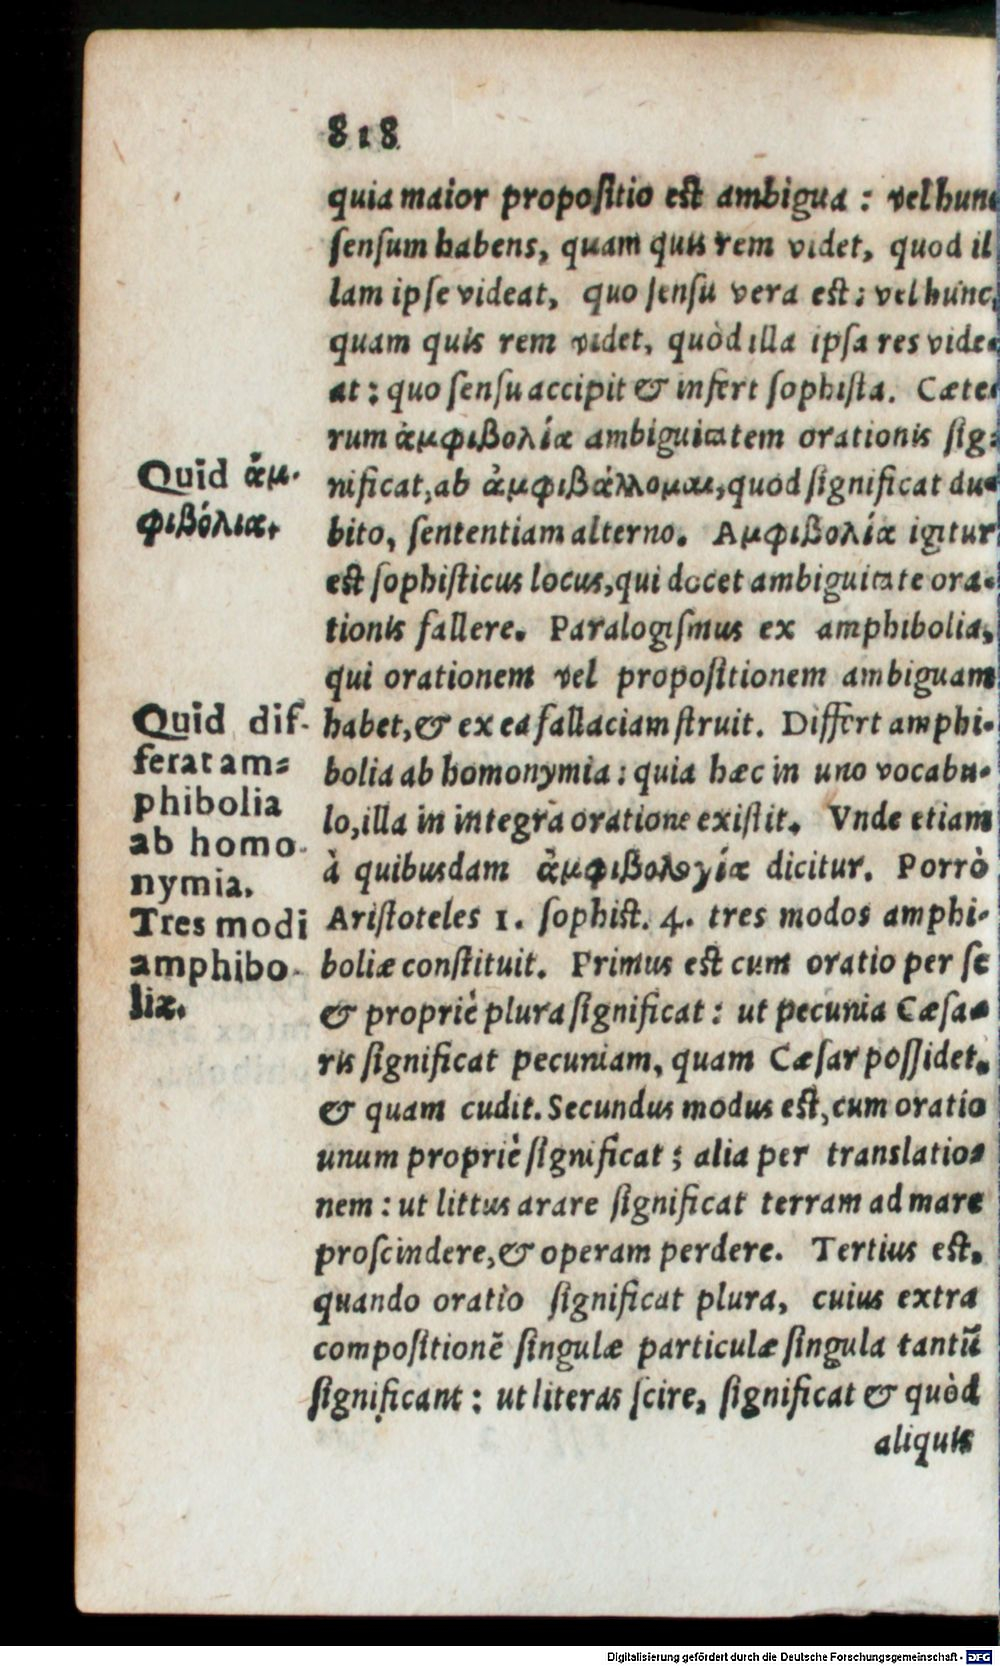 818
quia maior propoſitio eſt ambigua : vel hunc
ſenſum habens, quam quis rem videt, quod il
lam ipſe videat, quo ſenſu vera eſt: vel hunc,
quam quis rem videt, quòd illa ipſa res vide-
at : quo ſenſu accipit & infert ſophiſta. Cæte-
rum ἀμφιβολία ambiguitatem orationis ſig-
nificat, ab ἀμφιβάλλομαι, quod ſignificat du-
bito, ſententiam alterno. Αμφιβολία igitur
eſt ſophiſticus locus, qui docet ambiguitate ora-
tionis fallere. Paralogiſmus ex amphibolia,
qui orationem vel propoſitionem ambiguam
habet, & ex ea fallaciam ſtruit. Differt amphi-
bolia ab homonymia : quia hæc in uno vocabu-
lo, illa in integrà oratione exiſtit. Vnde etiam
à quibusdam ἀμφιβολογία dicitur. Porrò
Ariſtoteles 1. ſophiſt. 4. tres modos amphi-
boliæ conſtituit. Primus eſt cum oratio per ſe
& propriè plura ſignificat : ut pecunia Cæſa-
ris ſignificat pecuniam, quam Cæſar poſſidet,
& quam cudit. Secundus modus eſt, cum oratio
unum propriè ſignificat ; alia per translatio-
nem : ut littus arare ſignificat terram ad mare
proſcindere, & operam perdere. Tertius eſt,
quando oratio ſignificat plura, cuius extra
compoſitionẽ ſingulæ particulæ ſingula tantũ
ſignificant : ut literas ſcire, ſignificat & quòd
aliquis
Quid ἀμ-
φιβόλια.
Quid dif-
ferat am-
phibolia
ab homo-
nymia.
Tres modi
amphibo-
liæ.
Digitalisierung gefördert durch die Deutsche Forschungsgemeinschaft - DFG